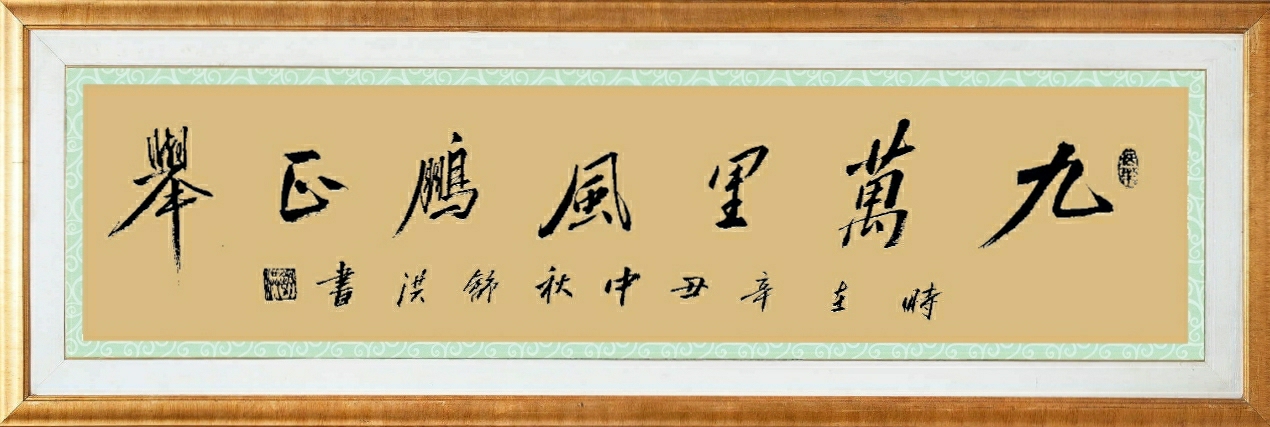 九萬里風鵬正舉
時在辛丑中秋錦洪書